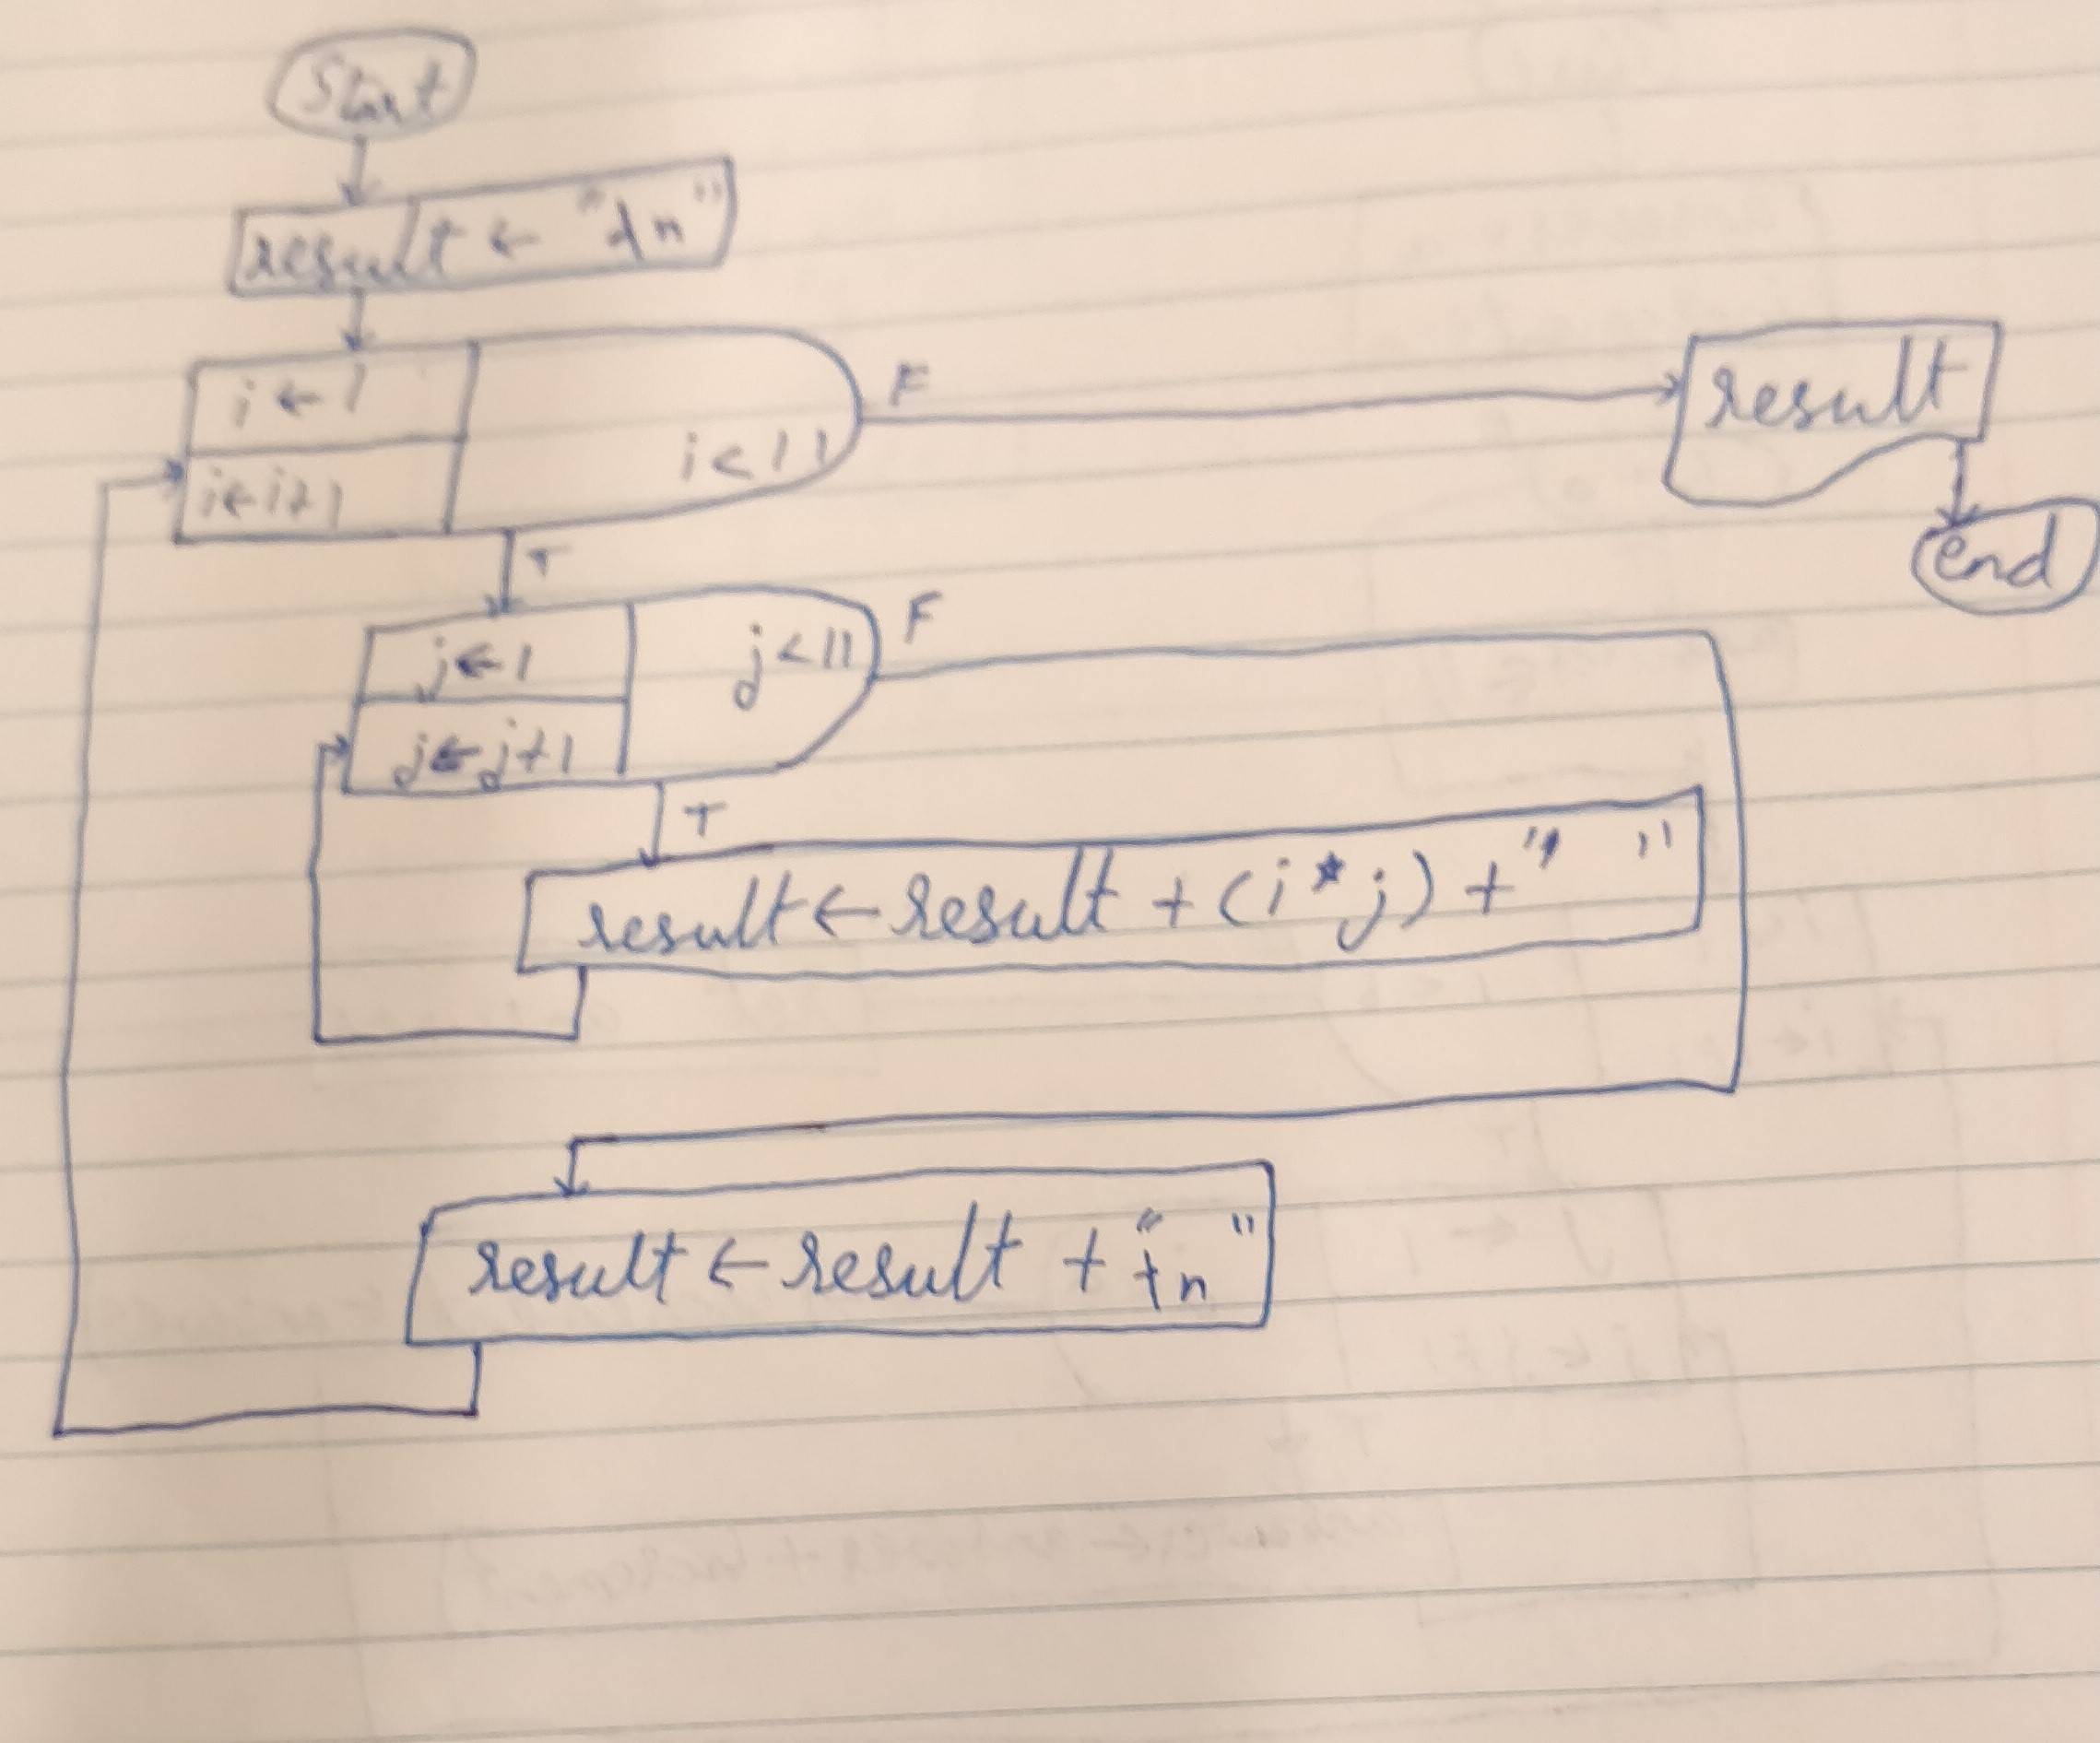 Start
result ← "\n"
i ← 1
i < 11
F
result
i ← i+1
end
T
j ← 1
j < 11
F
j ← j+1
T
result ← result + (i * j) + " "
result ← result + "\n"